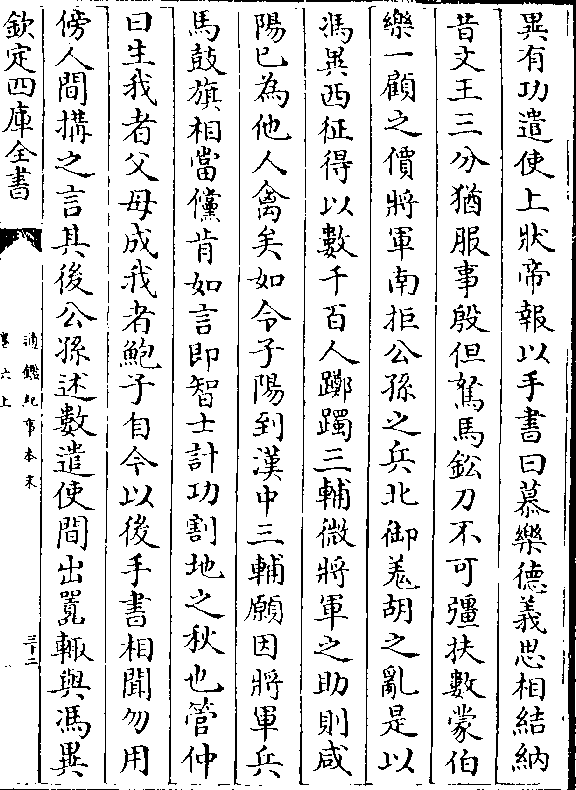 異有功遣使上狀帝報以手書曰慕樂德義思相結納
昔文王三分猶服事殷但駑馬鉛刀不可彊扶數蒙伯
樂一顧之價將軍南拒公孫之兵北御羗胡之亂是以
馮異西征得以數千百人躑躅三輔微將軍之助則咸
陽已為他人禽矣如令子陽到漢中三輔願因將軍兵
馬鼓旗相當儻肯如言即智士計功割地之秋也管仲
曰生我者父母成我者鮑子自今以後手書相聞勿用
傍人間搆之言其後公孫述數遣使間出囂輒與馮異
欽定四庫全書
通鑑紀事本末
卷六上
三十二